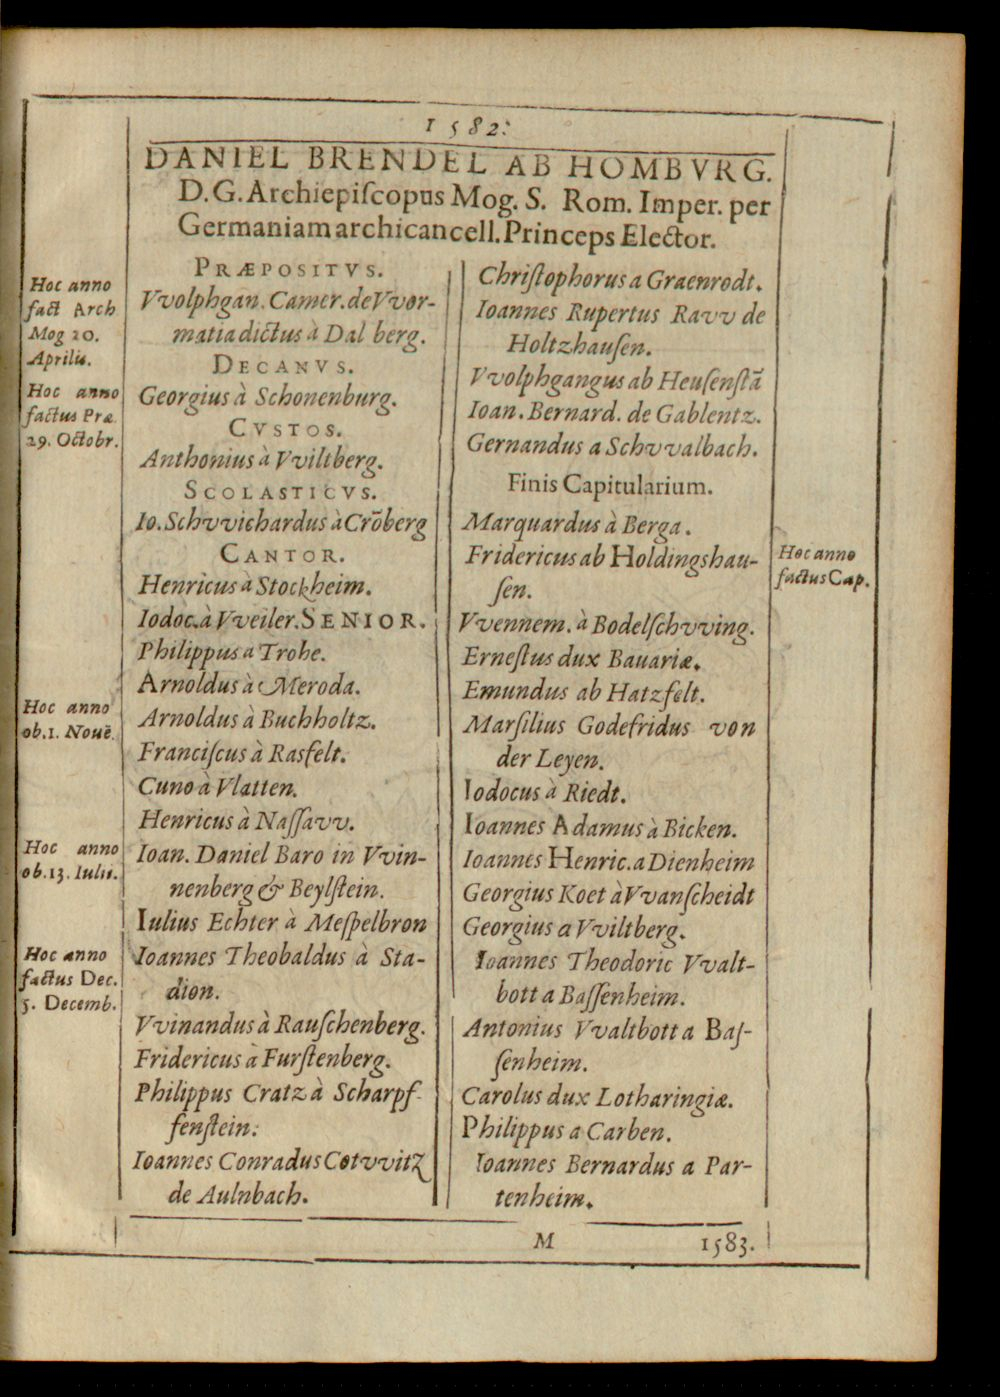 1582.
DANIEL BRENDEL AB HOMBVRG.
D.G. Archiepiſcopus Mog. S. Rom. Imper. per
Germaniam archicancell. Princeps Elector.
Hoc anno
fact Arch
Mog 20.
Aprilis.
Hoc anno
factus Præ
29. Octobr.
Hoc anno
ob. 1. Nouē.
Hoc anno
ob. 13. Iulii.
Hoc anno
factus Dec.
5. Decemb.
PRÆPOSITVS.
Vvolphgan. Camer. de Vvor-
matia dictus à Dal berg.
DECANVS.
Georgius à Schonenburg.
CVSTOS.
Anthonius à Vviltberg.
SCOLASTICVS.
Io. Schvvichardus à Crōberg
CANTOR.
Henricus à Stockheim.
Iodoc. à Vveiler. SENIOR.
Philippus a Trohe.
Arnoldus à Meroda.
Arnoldus à Buchholtz.
Franciſcus à Rasfelt.
Cuno à Vlatten.
Henricus à Naſſavv.
Ioan. Daniel Baro in Vvin-
nenberg & Beylſtein.
Iulius Echter à Meſpelbron
Ioannes Theobaldus à Sta-
dion.
Vvinandus à Rauſchenberg.
Fridericus à Furſtenberg.
Philippus Cratz à Scharpf-
fenſtein.
Ioannes Conradus Cotvvitz
de Aulnbach.
Chriſtophorus a Graenrodt.
Ioannes Rupertus Ravv de
Holtzhauſen.
Vvolphgangus ab Heuſenſtā
Ioan. Bernard. de Gablentz.
Gernandus a Schvvalbach.
Finis Capitularium.
Marquardus à Berga.
Fridericus ab Holdingshau-
ſen.
Vvennem. à Bodelſchvving.
Erneſtus dux Bauariæ.
Emundus ab Hatzfelt.
Marſilius Godefridus von
der Leyen.
Iodocus à Riedt.
Ioannes Adamus à Bicken.
Ioannes Henric. a Dienheim
Georgius Koet à Vvanſcheidt
Georgius a Vviltberg.
Ioannes Theodoric Vvalt-
bott a Baſſenheim.
Antonius Vvaltbott a Baſ-
ſenheim.
Carolus dux Lotharingiæ.
Philippus a Carben.
Ioannes Bernardus a Par-
tenheim.
Hoc anno
factus Cap.
M 1583.